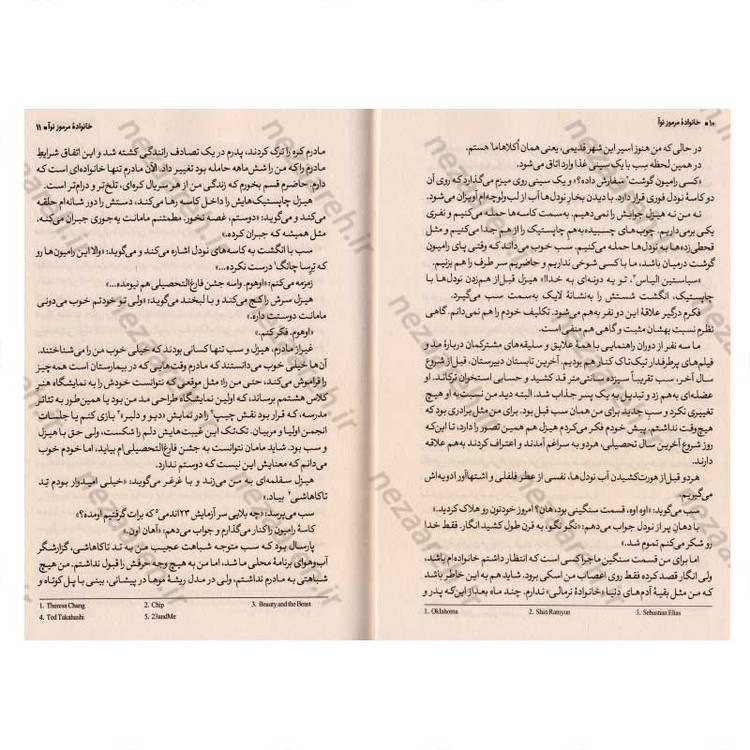 ۱۰ ■ خانوادهٔ مرموز نوآ
در حالی که من هنوز اسیر این شهر قدیمی، یعنی همان اُکلاهاما¹ هستم.
در همین لحظه سِب با یک سینی غذا وارد اتاق می‌شود.
«کسی رامیون گوشت² سفارش داده؟» و یک سینی روی میزم می‌گذارد که روی آن
دو کاسهٔ نودل فوری قرار دارد. با دیدن بخار نودل‌ها آب از لب‌ولوچه‌ام آویزان می‌شود.
نه من نه هیزل جوابش را نمی‌دهیم. به‌سمت کاسه‌ها حمله می‌کنیم و نفری
یکی برمی‌داریم. چوب‌های چسبیده‌به‌هم چاپستیک را از هم جدا می‌کنیم و مثل
قحطی‌زده‌ها به نودل‌ها حمله می‌کنیم. سب خوب می‌داند که وقتی پای رامیون
گوشت درمیان باشد، ما با کسی شوخی نداریم و حاضریم سر طرف را هم بزنیم.
«سباستین الیاس³، تو یه دونه‌ای به خدا!» هیزل قبل‌از هم‌زدن نودل‌ها با
چاپستیک، انگشت شستش را به‌نشانهٔ لایک به‌سمت سب می‌گیرد.
فکرم درگیر علاقهٔ این دو نفر به‌هم می‌شود. تکلیف خودم را هم نمی‌دانم. گاهی
نظرم نسبت بهشان مثبت و گاهی هم منفی است.
ما سه نفر از دوران راهنمایی با همهٔ علایق و سلیقه‌های مشترکمان دربارهٔ مد و
فیلم‌های پرطرفدار تیک‌تاک کنار هم بودیم. آخرین تابستان دبیرستان، قبل‌از شروع
سال آخر، سب تقریباً سیزده سانتی‌متر قد کشید و حسابی استخوان ترکاند. او
عضله‌ای به‌هم زد و تبدیل به یک پسر جذاب شد. البته دید من نسبت‌به او هیچ
تغییری نکرد و سبِ جدید برای من همان سب قبل بود. برای من مثل برادری بود که
هیچ‌وقت نداشتم. پیش خودم فکر می‌کردم هیزل هم همین تصور را دارد، تا این‌که
روز شروع آخرین سال تحصیلی، هردو به سراغم آمدند و اعتراف کردند به‌هم علاقه
دارند.
هردو قبل‌از هورت‌کشیدن آب نودل‌ها، نفسی از عطر فلفلی و اشتهاآور ادویه‌اش
می‌گیریم.
سب می‌گوید: «اوه اوه، قسمت سنگینی بود، هان؟ امروز خودتون رو هلاک کردید.»
با دهانِ پر از نودل جواب می‌دهم: «نگو نگو، یه قرن طول کشید انگار. فقط خدا
رو شکر می‌کنم تموم شد.»
اما برای من قسمت سنگین ماجرا کسی است که انتظار داشتم خانواده‌ام باشد،
ولی انگار قصد کرده فقط روی اعصاب من اسکی برود. شاید هم به این خاطر باشد
که من مثل بقیهٔ آدم‌های دنیا «خانوادهٔ نرمالی» ندارم. چند ماه بعداز این‌که پدر و
1. Oklahoma 2. Shin Ramyun 3. Sebastian Elias
خانوادهٔ مرموز نوآ ■ ۱۱
مادرم کره را ترک کردند، پدرم در یک تصادف رانندگی کشته شد و این اتفاق شرایطِ
مادرم را که من را شش‌ماهه حامله بود تغییر داد. الآن مادرم تنها خانواده‌ای است که
دارم. حاضرم قسم بخورم که زندگی من از هر سریال کره‌ای، تلخ‌تر و درام‌تر است.
هیزل چاپستیک‌هایش را داخل کاسه رها می‌کند، دستش را دور شانه‌ام حلقه
می‌کند و می‌گوید: «دوستم، غصه نخور. مطمئنم مامانت یه‌جوری جبران می‌کنه.
مثل همیشه که جبران کرده.»
سب با انگشت به کاسه‌های نودل اشاره می‌کند و می‌گوید: «والا این رامیون‌ها رو
که تِرِسا چانگ¹ درست نکرده...»
زمزمه می‌کنم: «اوهوم. واسه جشن فارغ‌التحصیلی هم نیومده...»
هیزل سرش را کج می‌کند و با لبخند می‌گوید: «ولی تو خودتم خوب می‌دونی
مامانت دوستت داره.»
«اوهوم. فکر کنم.»
غیراز مادرم، هیزل و سب تنها کسانی بودند که خیلی خوب من را می‌شناختند.
آن‌ها خیلی خوب می‌دانستند که مادرم وقت‌هایی که در بیمارستان است همه‌چیز
را فراموش می‌کند، حتی من را؛ مثل موقعی که نتوانست خودش را به نمایشگاه هنر
کلاس هشتمم برساند، که اولین نمایشگاه طراحی مد من بود یا همین‌طور به تئاتر
مدرسه، که قرار بود نقش چیپ² را در نمایش «دیو و دلبر»³ بازی کنم یا جلسات
انجمن اولیا و مربیان. تک‌تک این غیبت‌هایش دلم را شکست، ولی حق با هیزل
و سب بود. شاید مامان نتوانست به جشن فارغ‌التحصیلی‌ام بیاید، اما خودم خوب
می‌دانم که معنایش این نیست که دوستم ندارد.
هیزل سقلمه‌ای به من می‌زند و با غرغر می‌گوید: «خیلی امیدوار بودم تِد
تاکاهاشی⁴ بیاد.»
سب می‌پرسد: «چه بلایی سر آزمایش ۲۳اندمی⁵ که برات گرفتیم اومده؟»
کاسهٔ رامیون را کنار می‌گذارم و جواب می‌دهم: «آهان اون.»
پارسال بود که سب متوجه شباهت عجیب من به تد تاکاهاشی، گزارشگر
آب‌وهوای برنامهٔ محلی ما شد، اما من به هیچ وجه حرفش را قبول نداشتم. من هیچ
شباهتی به مادرم نداشتم، ولی در مدل ریشهٔ موها در پیشانی، بینی با پل کوتاه و
1. Theresa Chang 2. Chip 3. Beauty and the Beast
4. Ted Takahashi 5. 23andMe
nezaareh.ir